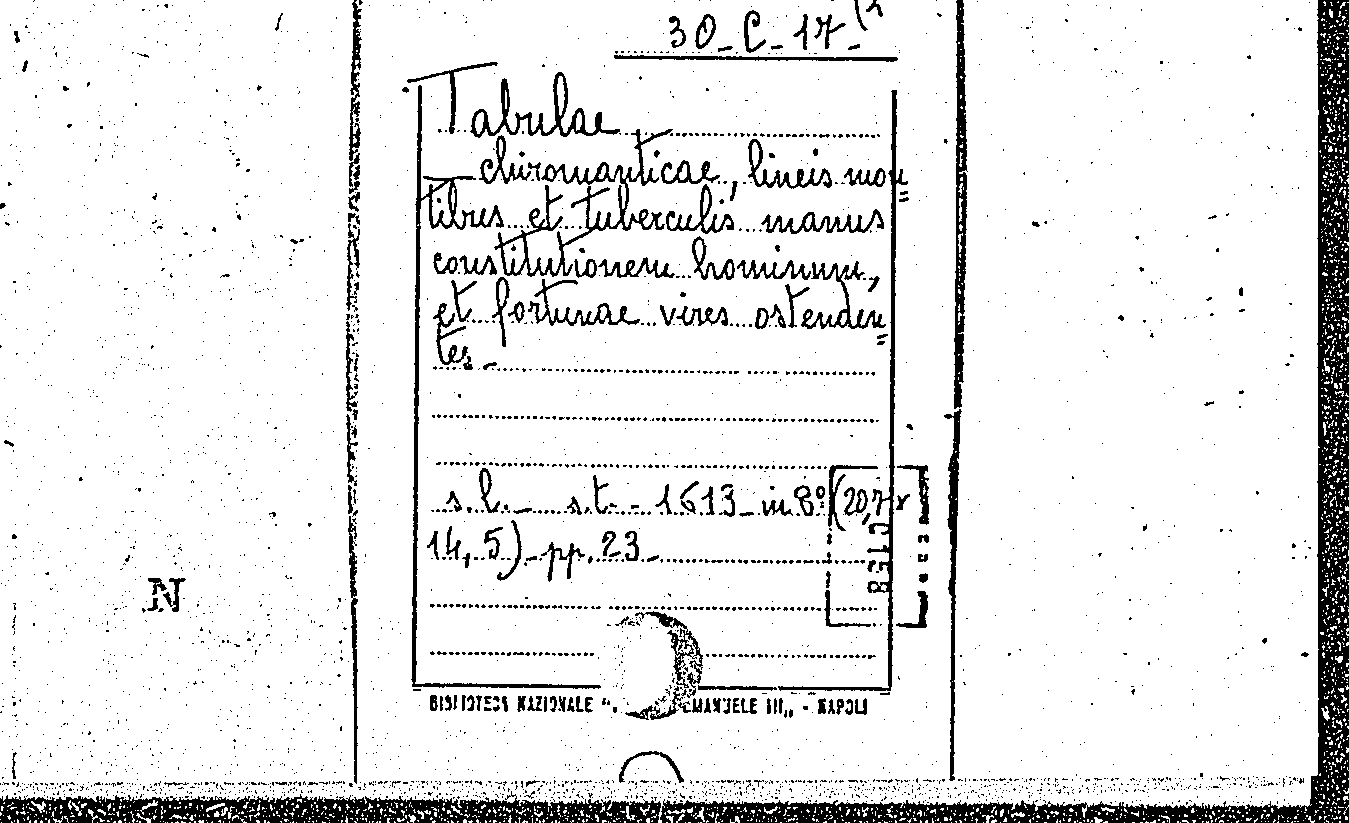 30_C_17_(2
Tabulae
— chiromanticae, lineis mon=
tibus et tuberculis manus
constitutionem hominum,
et fortunae vires ostenden=
tes_
s.l._ s.t. - 1613_ in 8º (20,7 x
14,5)_ pp. 23_
C 158
N
BIBLIOTECA NAZIONALE ". EMANUELE III„ - NAPOLI